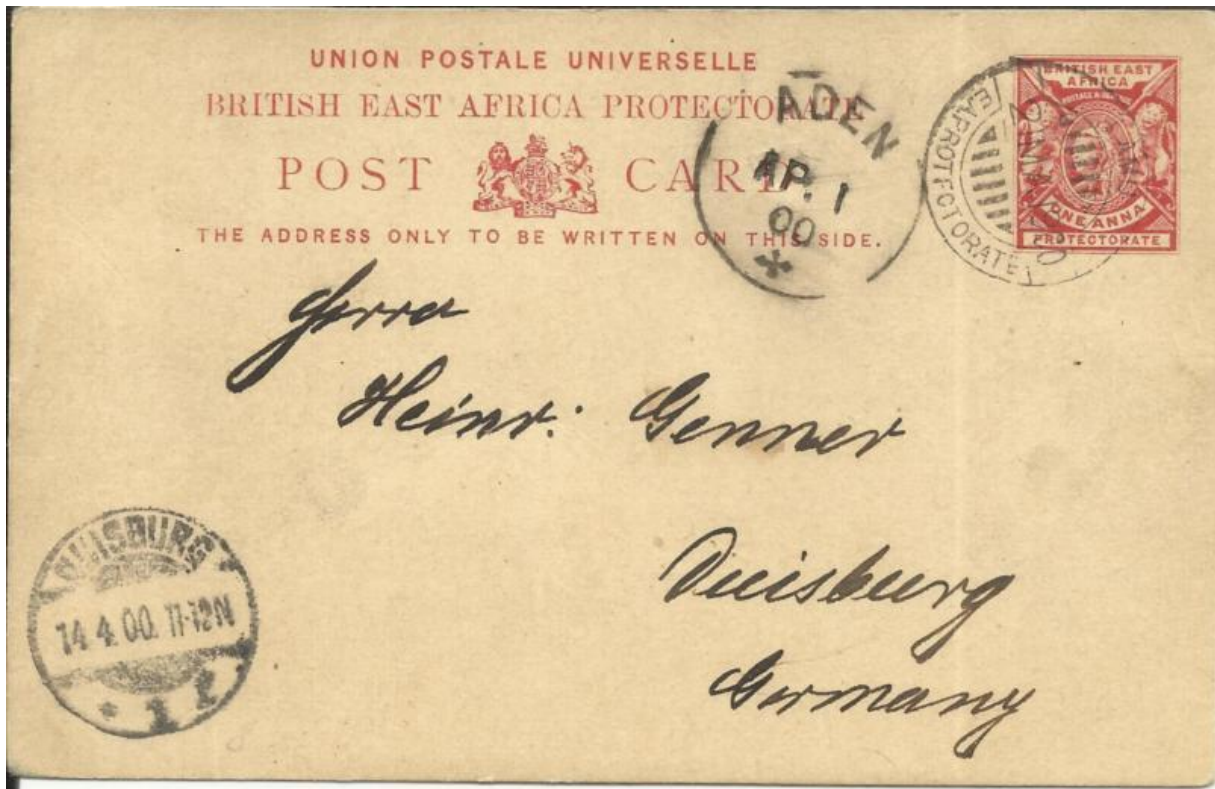 UNION POSTALE UNIVERSELLE
BRITISH EAST AFRICA PROTECTORATE
POST CARD
THE ADDRESS ONLY TO BE WRITTEN ON THIS SIDE.
ADEN
AP. 1
00
BRITISH EAST
AFRICA
ONE ANNA
PROTECTORATE
E.A.PROTECTORATE
Herrn
Heinr: Genner
Duisburg
Germany
DUISBURG
14.4.00. 11-12N